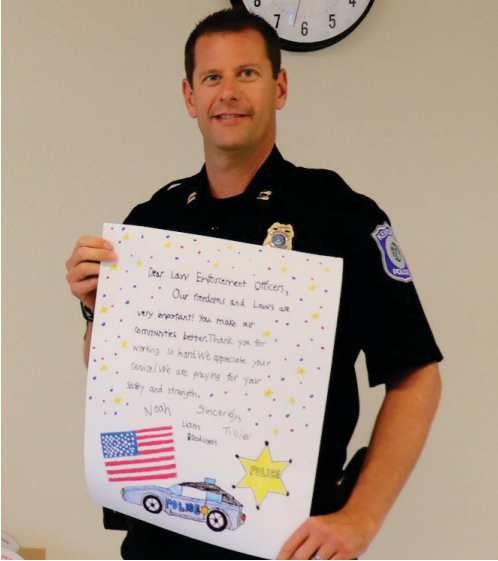 8
7 6 5 4
Dear Law Enforcement Officers,
Our freedoms and Laws are
very important! You make our
communities better. Thank you for
working so hard. We appreciate your
service! We are praying for your
safety and strength.
Sincerely,
Noah Liam Tillie
POLICE
POLICE
POLICE